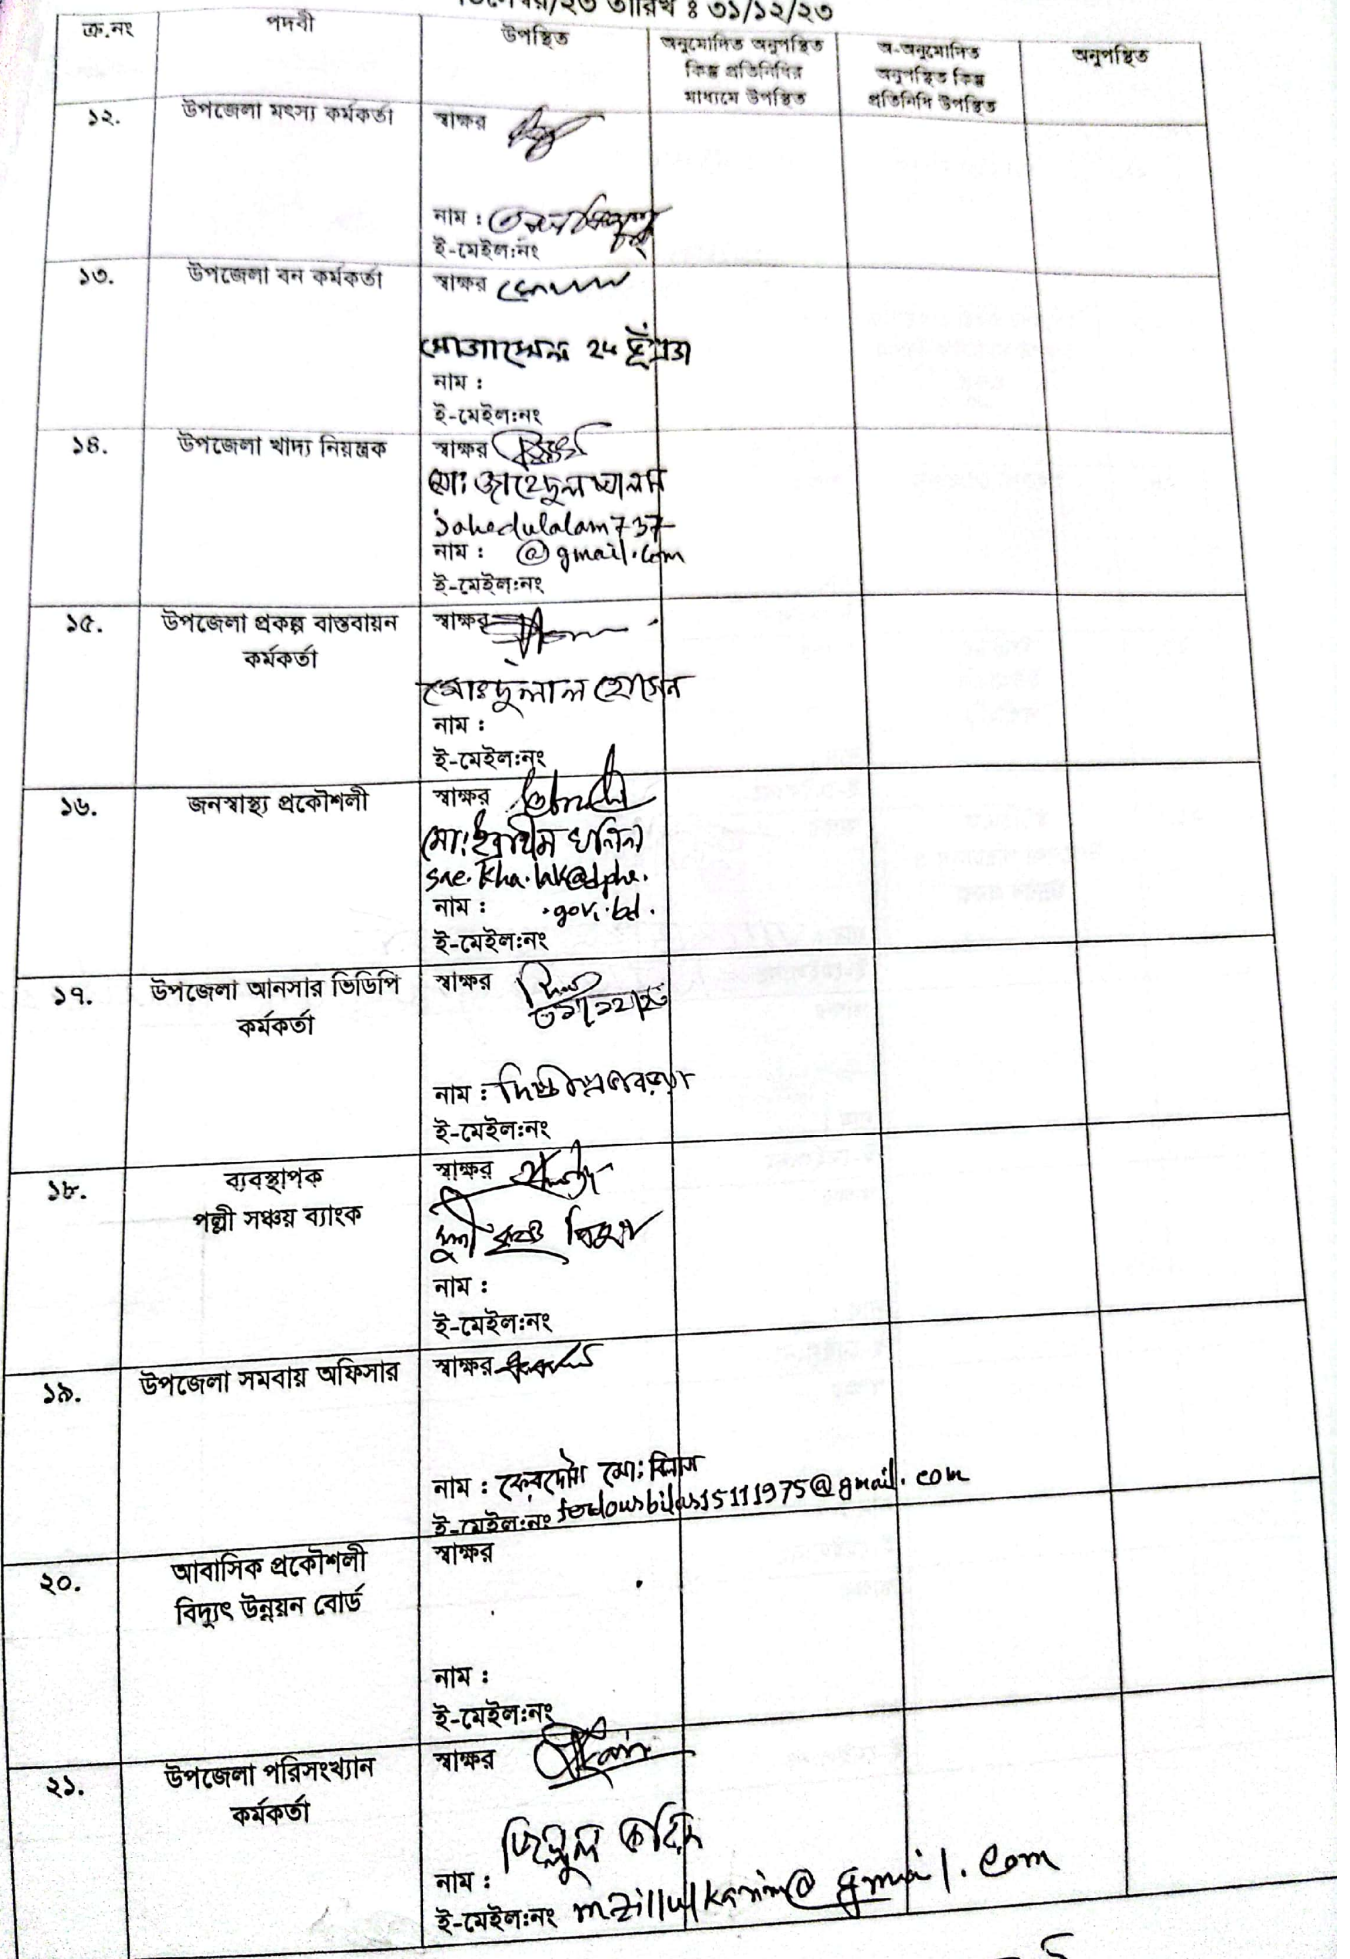 তারিখ ঃ ৩১/১২/২৩
ক্র.নং পদবী উপস্থিত অনুমোদিত অনুপস্থিত কিন্তু প্রতিনিধির মাধ্যমে উপস্থিত অ-অনুমোদিত অনুপস্থিত কিন্তু প্রতিনিধি উপস্থিত অনুপস্থিত
১২. উপজেলা মৎস্য কর্মকর্তা স্বাক্ষর
নাম :
ই-মেইল:নং
১৩. উপজেলা বন কর্মকর্তা স্বাক্ষর
নাম :
ই-মেইল:নং
১৪. উপজেলা খাদ্য নিয়ন্ত্রক স্বাক্ষর
মো: জাহেদুল আলম
jahedulalam737
নাম : @gmail.com
ই-মেইল:নং
১৫. উপজেলা প্রকল্প বাস্তবায়ন স্বাক্ষর
কর্মকর্তা
মোঃ দুলাল হোসেন
নাম :
ই-মেইল:নং
১৬. জনস্বাস্থ্য প্রকৌশলী স্বাক্ষর
মো: ইব্রাহিম খলিল
sae.kha.lak@dphe.
নাম : .gov.bd.
ই-মেইল:নং
১৭. উপজেলা আনসার ভিডিপি স্বাক্ষর
কর্মকর্তা ৩১/১২/২৩
নাম :
ই-মেইল:নং
১৮. ব্যবস্থাপক স্বাক্ষর
পল্লী সঞ্চয় ব্যাংক
নাম :
ই-মেইল:নং
১৯. উপজেলা সমবায় অফিসার স্বাক্ষর
নাম : মো: বিলাস
ই-মেইল:নং ferdousbilas15111975@gmail.com
২০. আবাসিক প্রকৌশলী স্বাক্ষর
বিদ্যুৎ উন্নয়ন বোর্ড
নাম :
ই-মেইল:নং
২১. উপজেলা পরিসংখ্যান স্বাক্ষর
কর্মকর্তা
জিল্লুল করিম
নাম :
ই-মেইল:নং mzillulkarim@gmail.com